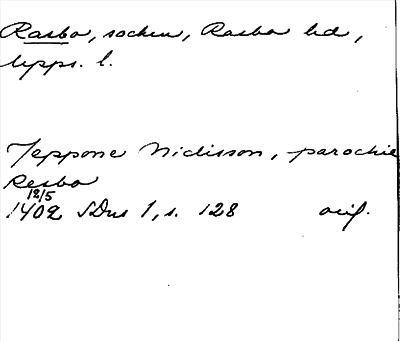 Rasbo, socken, Rasbo hd,
Upps. l.
Jeppone Niclisson, parochie
Resbo
12/5
1402 SDns 1, s. 128 orig.